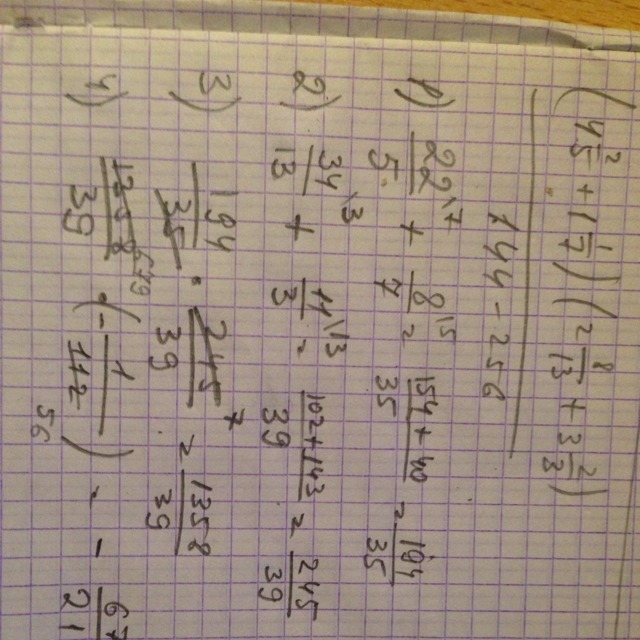 (4 2/5 + 1 1/7)(2 8/13 + 3 2/3)
144 - 256
1) 22\7/5 + 8\5/7 = 154+40/35 = 194/35
2) 34\3/13 + 11\13/3 = 102+143/39 = 245/39
3) 194/35 · 245 7/39 = 1358/39
4) 1358 679/39 · (- 1/112 56) = -